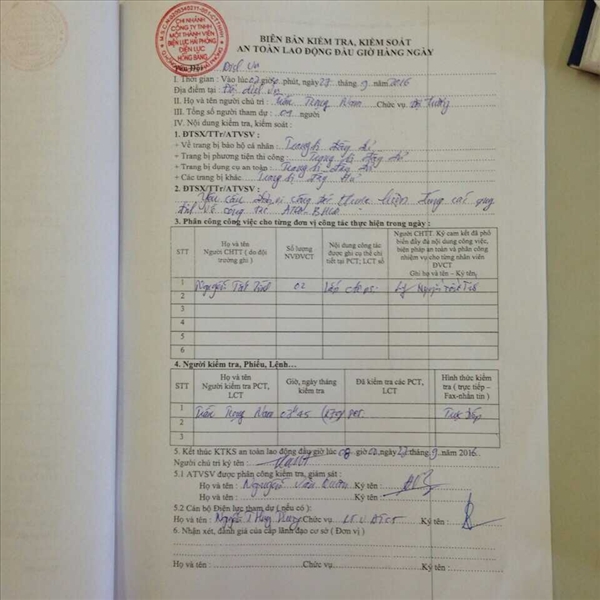 M.S.C.N:0200340211-001-C.T.T.N.H.H
CHI NHÁNH
CÔNG TY TNHH
MỘT THÀNH VIÊN
ĐIỆN LỰC HẢI PHÒNG
ĐIỆN LỰC
HỒNG BÀNG
BIÊN BẢN KIỂM TRA, KIỂM SOÁT
AN TOÀN LAO ĐỘNG ĐẦU GIỜ HÀNG NGÀY
I. Thời gian : Vào lúc 07 giờ phút, ngày 27 tháng 9 năm 2016
Địa điểm tại : Đội
II. Họ và tên người chủ trì : Trần Trọng Nam Chức vụ Đội trưởng
III. Tổng số người tham dự : 09 người
IV. Nội dung kiểm tra, kiểm soát :
1. ĐTSX/TTr/ATVSV :
+ Về trang bị bảo hộ cá nhân : Trang bị đầy đủ
+ Trang bị phương tiện thi công : Trang bị đầy đủ
+ Trang bị dụng cụ an toàn : Trang bị đầy đủ
+ Các trang bị khác Trang bị đầy đủ
2. ĐTSX/TTr/ATVSV :
Yêu cầu đơn vị công tác thực hiện đúng các quy
định về công tác
3. Phân công công việc cho từng đơn vị công tác thực hiện trong ngày :
STT
Họ và tên
Người CHTT ( do đội
trưởng ghi )
Số lượng
NVĐVCT
Nội dung công tác
được ghi cụ thể chi
tiết tại PCT; LCT số
Người CHTT. Ký cam kết đã phổ
biến đầy đủ nội dung công việc,
biện pháp an toàn và phân công
nhiệm vụ cho từng nhân viên
ĐVCT
Ghi họ và tên – Ký tên,
1 Nguyễn 02 Nguyễn
2
3
4
5
6
4. Người kiểm tra, Phiếu, Lệnh…
STT
Họ và tên
Người kiểm tra PCT,
LCT
Giờ, ngày tháng
kiểm tra
Đã kiểm tra các PCT,
LCT
Hình thức kiểm
tra ( trực tiếp –
Fax-nhắn tin )
1 Trần Trọng Nam 07h45 Trực tiếp
2
3
5. Kết thúc KTKS an toàn lao động đầu giờ lúc 08 giờ 00 ngày 27 tháng 9 năm 2016
Người chủ trì ký tên :
5.1 ATVSV được phân công kiểm tra, giám sát :
Họ và tên : Nguyễn Văn Ký tên :
Họ và tên : Ký tên :
5.2 Cán bộ Điện lực tham dự ( nếu có ) :
Họ và tên : Nguyễn Chức vụ Ký tên :
6. Nhận xét, đánh giá của cấp lãnh đạo cơ sở ( Đơn vị )
Họ và tên : Chức vụ Ký tên :